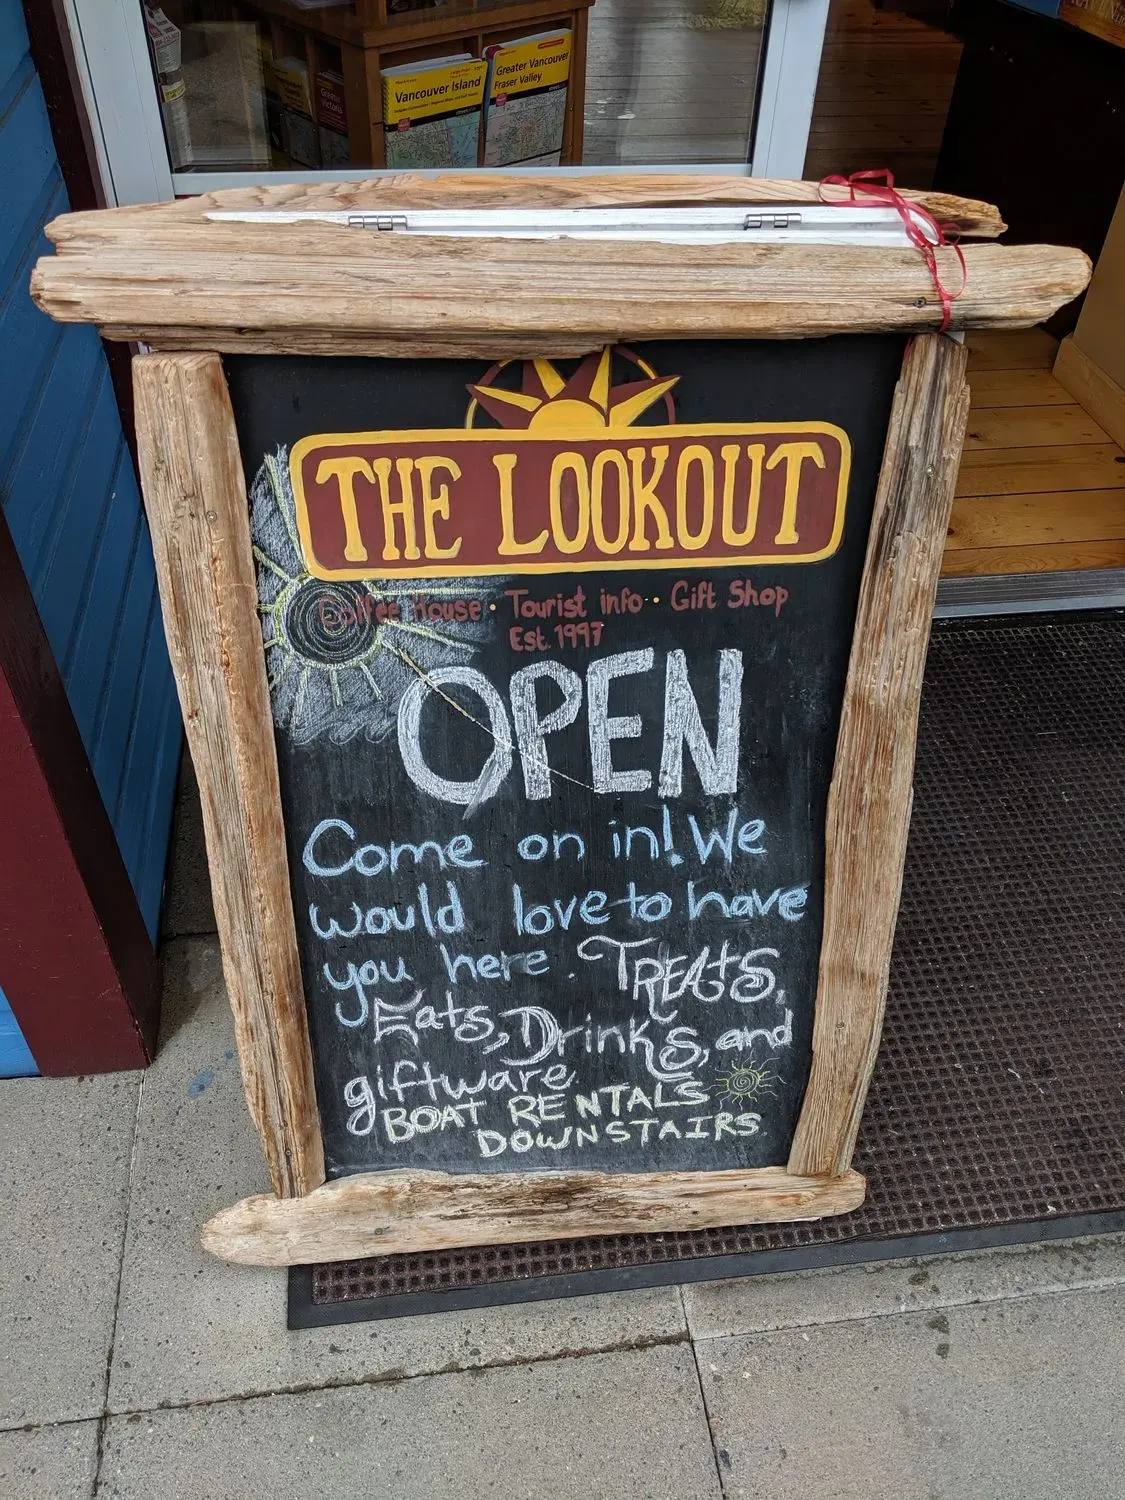 Vancouver Island
Greater Vancouver
Fraser Valley
Greater
Victoria
THE LOOKOUT
Coffee House · Tourist info · Gift Shop
Est. 1997
OPEN
Come on in! We
would love to have
you here. TREAtS,
Eats, Drinks, and
giftware
BOAT RENTALS
DOWNSTAIRS